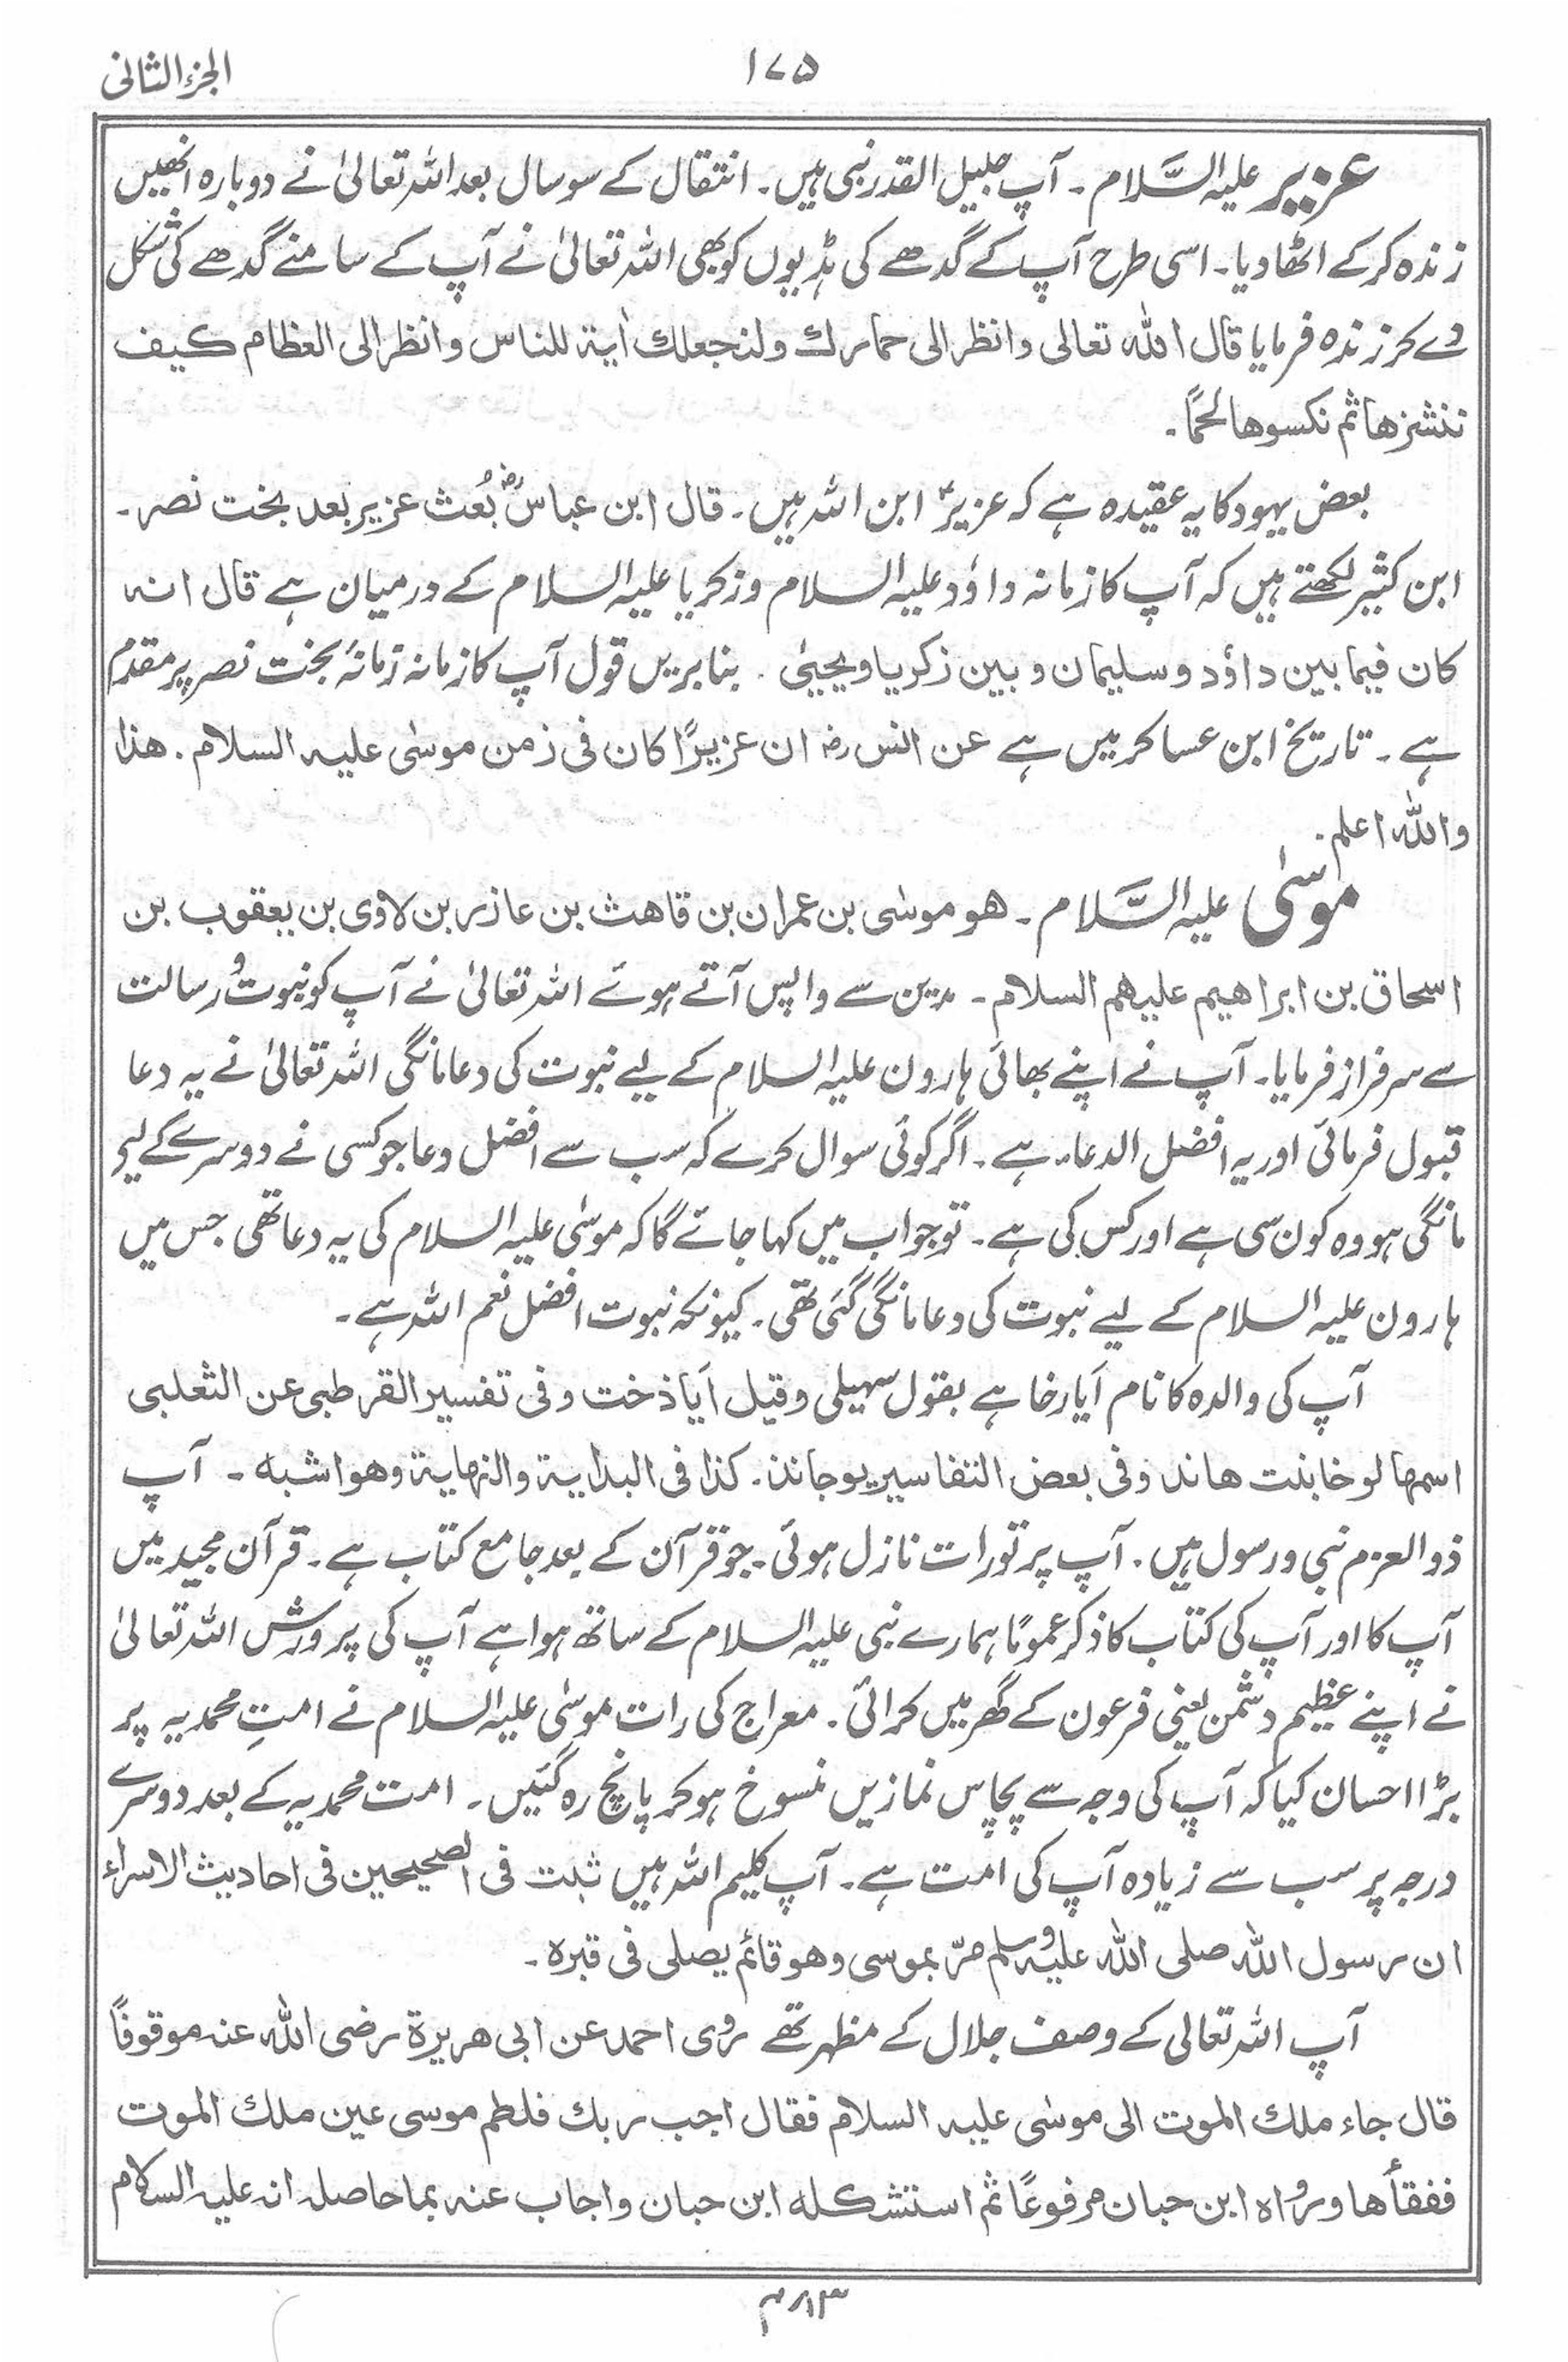 الجزء الثانی
۱۷۵
عزیر علیہ السَّلام ۔ آپ جلیل القدر نبی ہیں ۔ انتقال کے سو سال بعد اللہ تعالیٰ نے دوبارہ انھیں
زندہ کرکے اٹھا دیا ۔ اسی طرح آپ کے گدھے کی ہڈیوں کو بھی اللہ تعالیٰ نے آپ کے سامنے گدھے کی شکل
دے کر زندہ فرمایا قال اللہ تعالی وانظر الی حمارك ولنجعلك اٰیة للناس وانظر الی العظام کیف
ننشزها ثم نکسوها لحمًا ۔
بعض یہود کا یہ عقیدہ ہے کہ عزیرؑ ابن اللہ ہیں ۔ قال ابن عباسؓ بُعث عزیر بعد بخت نصر ۔
ابن کثیر لکھتے ہیں کہ آپ کا زمانہ داؤد علیہ السلام و زکریا علیہ السلام کے درمیان ہے قال انه
کان فیما بین داؤد و سلیمان و بین زکریا و یحییٰ ۔ بنا بریں قول آپ کا زمانہ زمانۂ بخت نصر پر مقدم
ہے ۔ تاریخ ابن عساکر میں ہے عن انس رضہ ان عزیرًا کان فی زمن موسٰی علیہ السلام ۔ هذا
والله اعلم ۔
موسٰی علیہ السَّلام ۔ هو موسٰی بن عمران بن قاهث بن عازر بن لاوٰی بن یعقوب بن
اسحاق بن ابراهیم علیهم السلام ۔ مدین سے واپس آتے ہوئے اللہ تعالیٰ نے آپ کو نبوت و رسالت
سے سرفراز فرمایا ۔ آپ نے اپنے بھائی ہارون علیہ السلام کے لیے نبوت کی دعا مانگی اللہ تعالیٰ نے یہ دعا
قبول فرمائی اور یہ افضل الدعاء ہے ۔ اگر کوئی سوال کرے کہ سب سے افضل دعا جو کسی نے دوسرے کے لیے
مانگی ہو وہ کون سی ہے اور کس کی ہے ۔ تو جواب میں کہا جائے گا کہ موسٰی علیہ السلام کی یہ دعا تھی جس میں
ہارون علیہ السلام کے لیے نبوت کی دعا مانگی گئی تھی ۔ کیونکہ نبوت افضل نعم اللہ ہے ۔
آپ کی والدہ کا نام اَیارخا ہے بقول سہیلی وقیل اَیاذخت وفی تفسیر القرطبی عن الثعلبی
اسمها لوخا بنت هاند وفی بعض التفاسیر یوجاند ۔ کذا فی البدایة والنهایة وهو اشبه ۔ آپ
ذوالعزم نبی و رسول ہیں ۔ آپ پر تورات نازل ہوئی ۔ جو قرآن کے بعد جامع کتاب ہے ۔ قرآن مجید میں
آپ کا اور آپ کی کتاب کا ذکر عمومًا ہمارے نبی علیہ السلام کے ساتھ ہوا ہے آپ کی پرورش اللہ تعالیٰ
نے اپنے عظیم دشمن یعنی فرعون کے گھر میں کرائی ۔ معراج کی رات موسٰی علیہ السلام نے امتِ محمدیہ پر
بڑا احسان کیا کہ آپ کی وجہ سے پچاس نمازیں منسوخ ہوکر پانچ رہ گئیں ۔ امت محمدیہ کے بعد دوسرے
درجہ پر سب سے زیادہ آپ کی امت ہے ۔ آپ کلیم اللہ ہیں ثبت فی الصحیحین فی احادیث الاسراء
ان رسول الله صلی الله علیه وسلم مرّ بموسی وهو قائم یصلی فی قبرہ ۔
آپ اللہ تعالی کے وصف جلال کے مظہر تھے روٰی احمد عن ابی هریرة رضی الله عنه موقوفًا
قال جاء ملك الموت الی موسٰی علیه السلام فقال اجب ربك فلطم موسی عین ملك الموت
ففقأها ورواه ابن حبان مرفوعًا ثم استشکله ابن حبان واجاب عنه بما حاصله انه علیه السلام